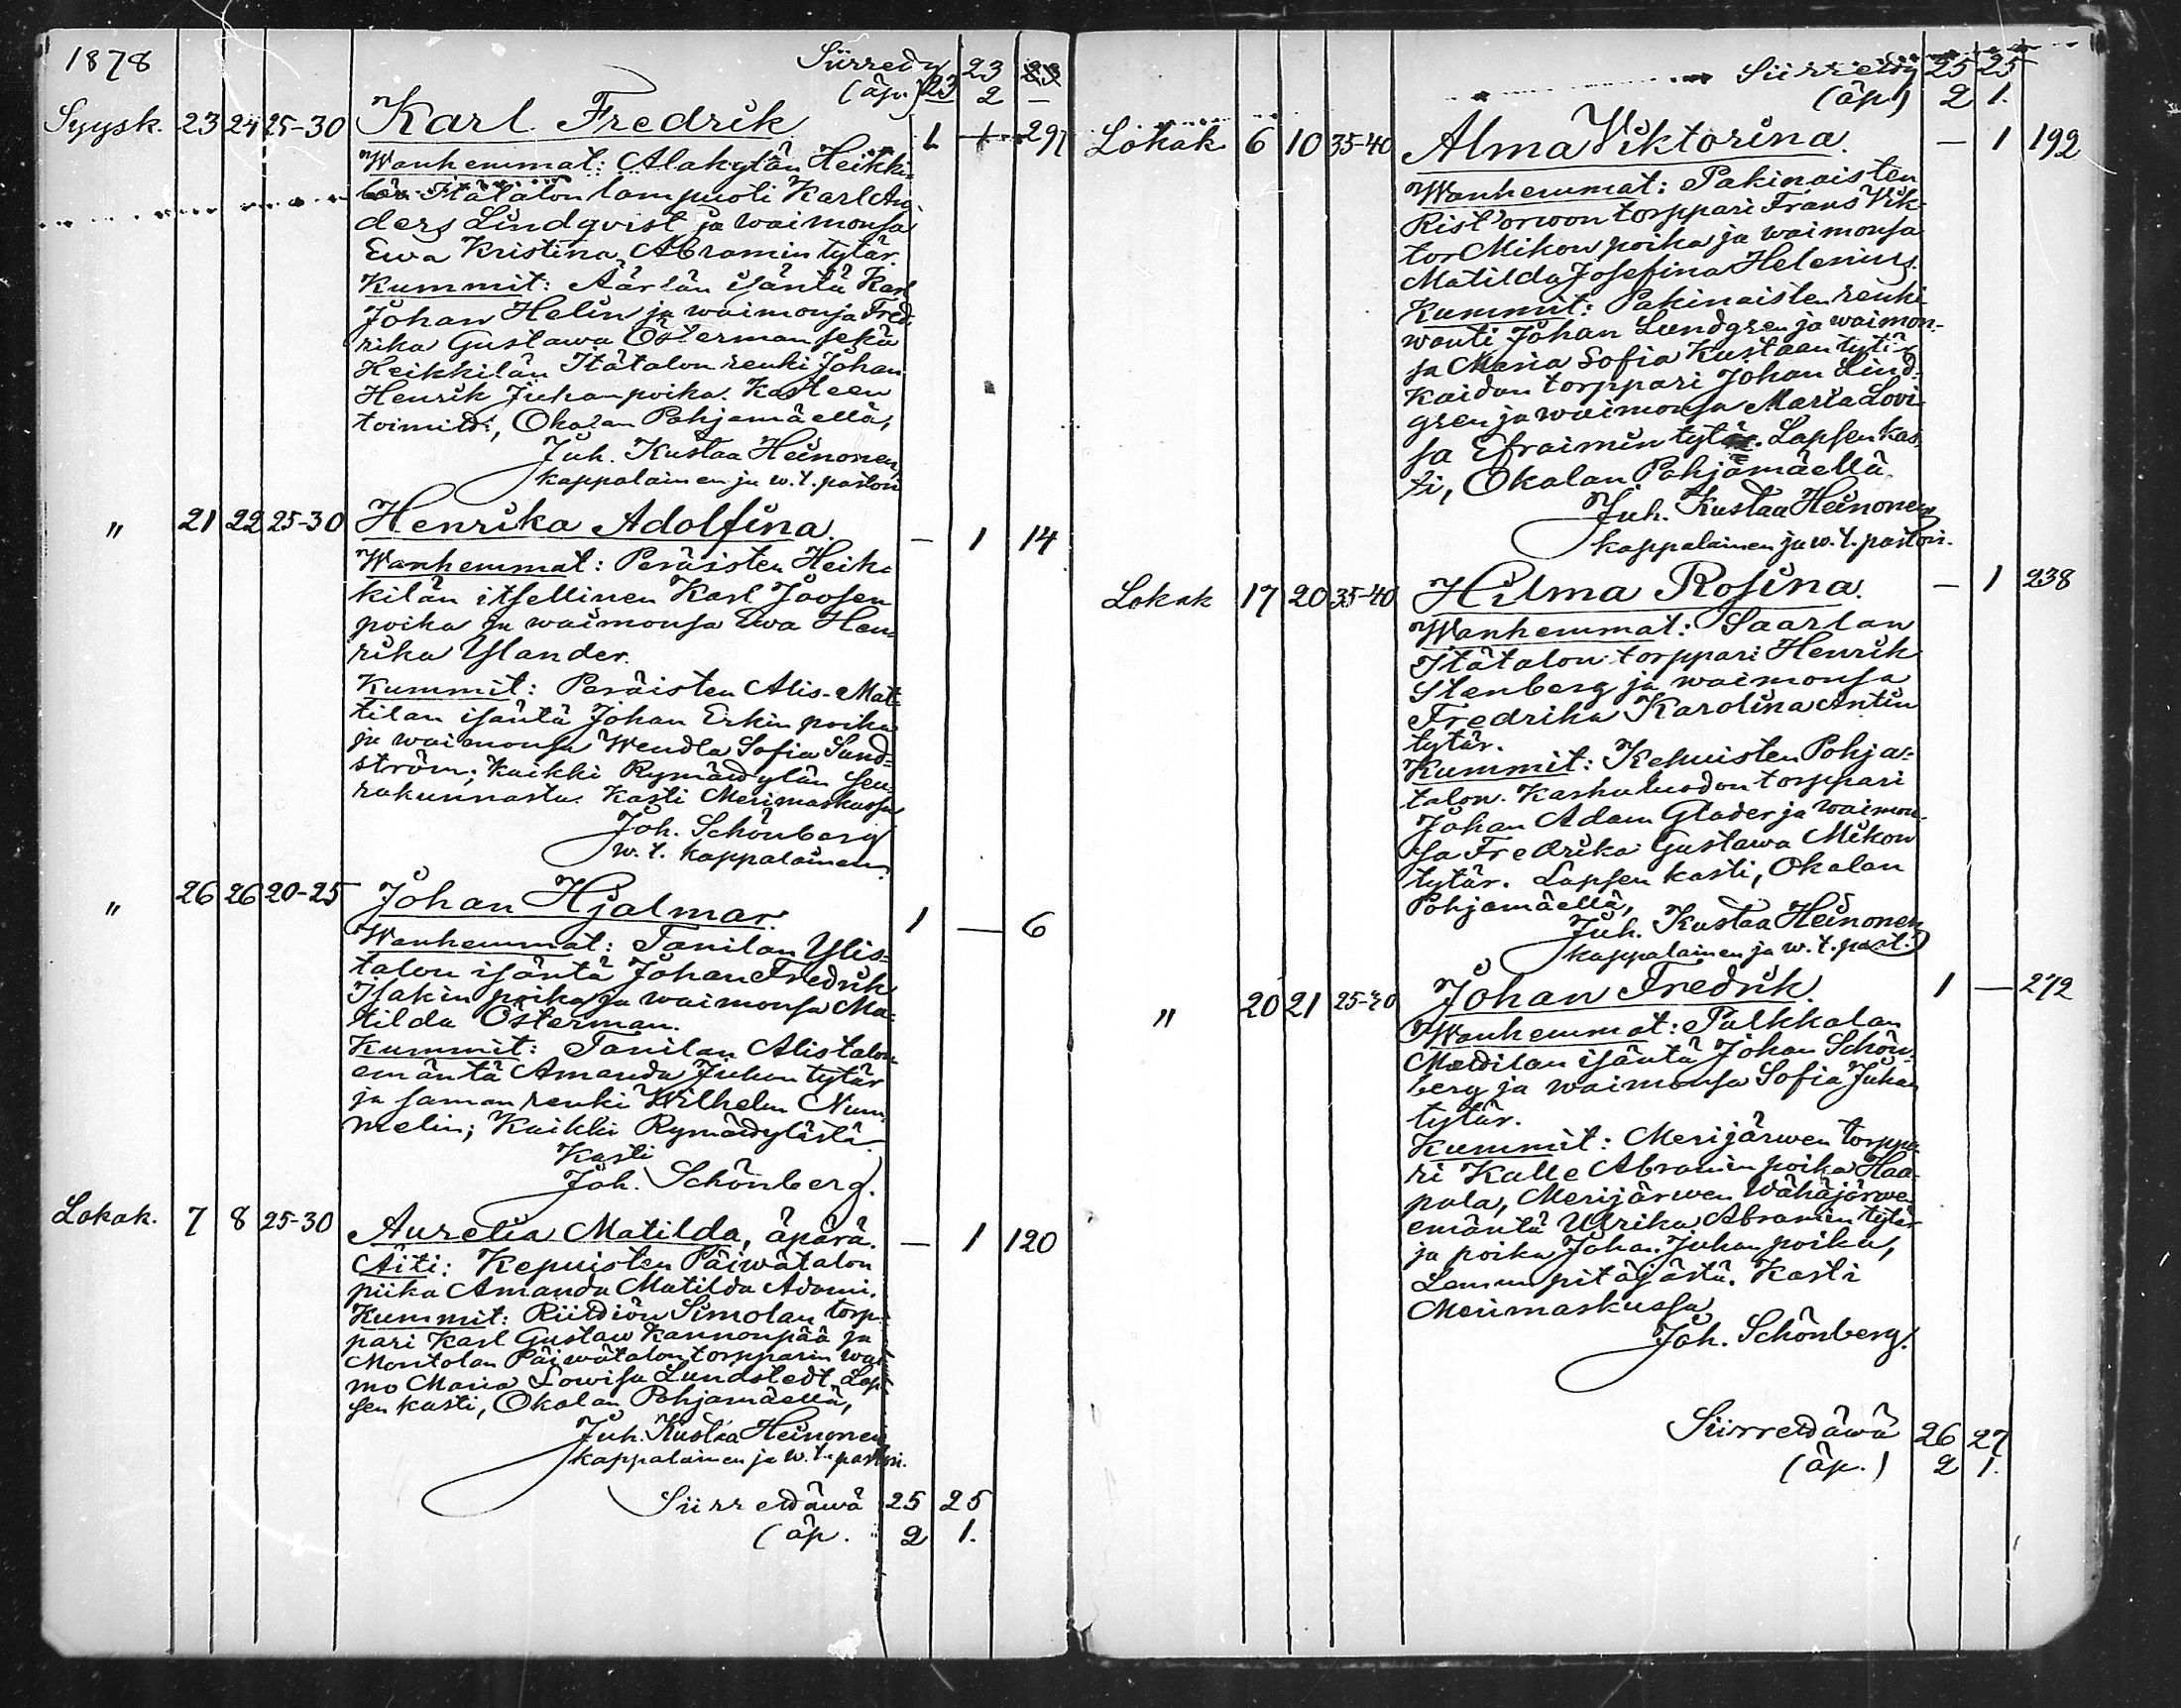 1878
Siirretty 23 23
(äp.) 23 2 —
Syysk. 23 24 25-30 Karl Fredrik. 1 + 297
Wanhemmat: Alakylän Heikki-
län Itätalon lampuoti Karl An-
ders Lindqvist ja waimonsa
Ewa Kristina Abramin tytär.
Kummit: Äärlän isäntä Karl
Johan Helin ja waimonsa Fred-
rika Gustawa Österman sekä
Heikkilän Itätalon renki Johan
Henrik Juhan poika. Kasteen
toimitti, Okolan Pohjamäellä,
Juh. Kustaa Heinonen
kappalainen ja w.t. pastori
" 21 22 25-30 Henrika Adolfina. — 1 14
Wanhemmat: Peräisten Heik-
kilän itsellinen Karl Joosen
poika ja waimonsa Ewa Hen-
rika Ylander.
Kummit: Peräisten Alis-Mat-
tilan isäntä Johan Erkin poika
ja waimonsa Wendla Sofia Sund-
ström; kaikki Rymättylän seu-
rakunnasta. Kasti Merimaskussa
Joh. Schönberg
w.t. kappalainen.
" 26 26 20-25 Johan Hjalmar. 1 — 6
Wanhemmat: Tanilan Ylis-
talon isäntä Johan Fredrik
Isakin poika ja waimonsa Ma-
tilda Österman.
Kummit: Tanilan Alistalon
emäntä Amanda Juhan tytär
ja saman renki Wilhelm Num-
melin; Kaikki Rymättylästä.
Kasti
Joh. Schönberg.
Lokak. 7 8 25-30 Aurelia Matilda, äpärä. — 1 120
Äiti: Kepuisten Päiwätalon
piika Amanda Matilda Adami.
Kummit: Riittiön Simolan torp-
pari Karl Gustaw Kannonpää ja
Montolan Päiwätalon torpparin wai-
mo Maria Lowisa Lundstedt. Lap-
sen kasti, Okolan Pohjamäellä,
Juh. Kustaa Heinonen
kappalainen ja w.t. pastori.
Siirrettäwä 25 25
(äp. 2 1.
Siirretty 25 25
(äp.) 2 1.
Lokak 6 10 35-40 Alma Viktorina. — 1 192
Wanhemmat: Pakinaisten
Ristorwon torppari Frans Vik-
tor Mikon poika ja waimonsa
Matilda Josefina Helenius.
Kummit: Pakinaisten renki
wouti Johan Lundgren ja waimon-
sa Maria Sofia Kustaan tytär
Kaidan torppari Johan Lind-
gren ja waimonsa Maria Lovi-
sa Efraimin tytär. Lapsen kas-
ti, Okalan Pohjamäellä.
Juh. Kustaa Heinonen
kappalainen ja w.t. pastori.
Lokak 17 20 35-40 Hilma Rosina. — 1 238
Wanhemmat: Saarlan
Itätalon torppari Henrik
Stenberg ja waimonsa
Fredrika Karolina Antin
tytär.
Kummit: Kepuisten Pohja-
talon Kashuluodon torppari
Johan Adam Glader ja waimon-
sa Fredrika Gustawa Mikon
tytär. Lapsen kasti, Okalan
Pohjamäellä,
Juh. Kustaa Heinonen
kappalainen ja w.t. past.
" 20 21 25-30 Johan Fredrik. 1 — 272
Wanhemmat: Pulkkalan
Mattilan isäntä Johan Schön-
berg ja waimonsa Sofia Juhan
tytär.
Kummit: Merijärwen torppa-
ri Kalle Abramin poika Haa-
pala, Merijärwen Wähäjärwen
emäntä Ulrika Abramin tytär
ja poika Johan Juhan poika,
Lemun pitäjästä. Kasti
Merimaskussa
Joh. Schönberg.
Siirrettäwä 26 27
(äp.) 2 1.